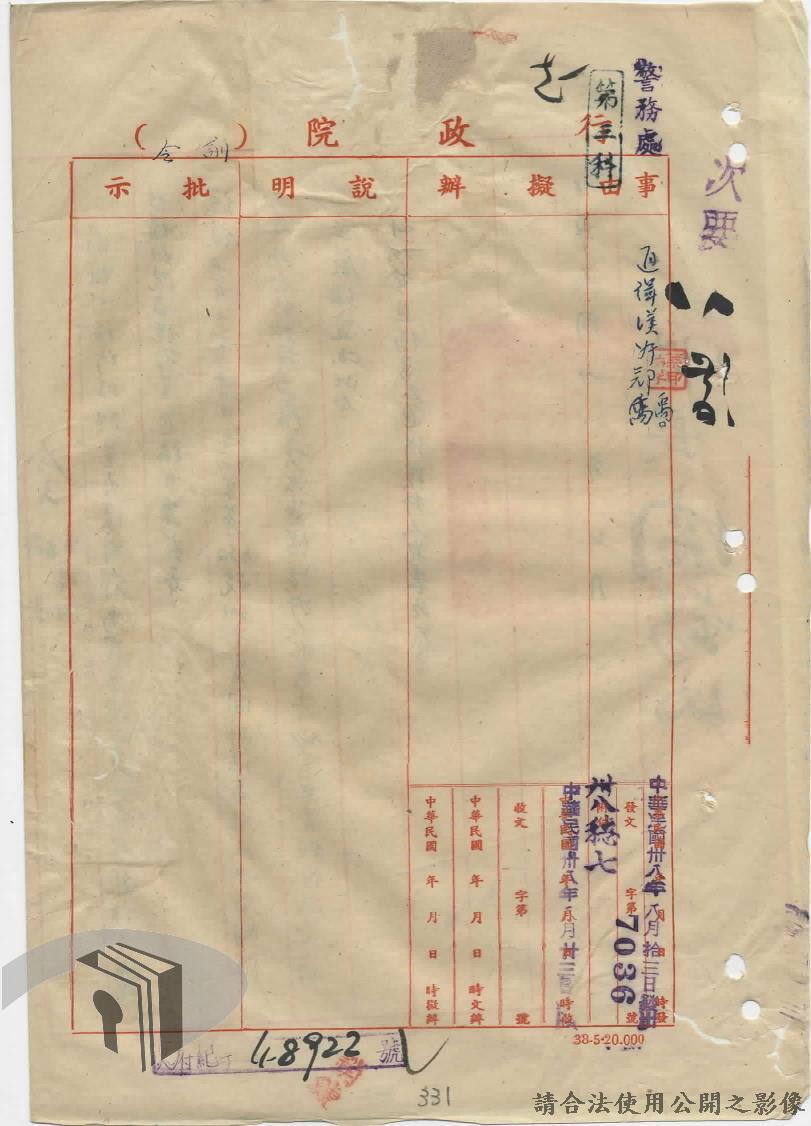 警務處
第三科
次要
行政院（訓令）
事由
擬辦
說明
批示
通緝漢奸鄭
中華民國卅八年八月拾三日
發文 字第 7036 號
卅八穗七
中華民國卅八年八月廿三日
收文 字第 號
中華民國 年 月 日 時交辦
中華民國 年 月 日 時擬辦
38-5-20.000
48922 號
331
請合法使用公開之影像